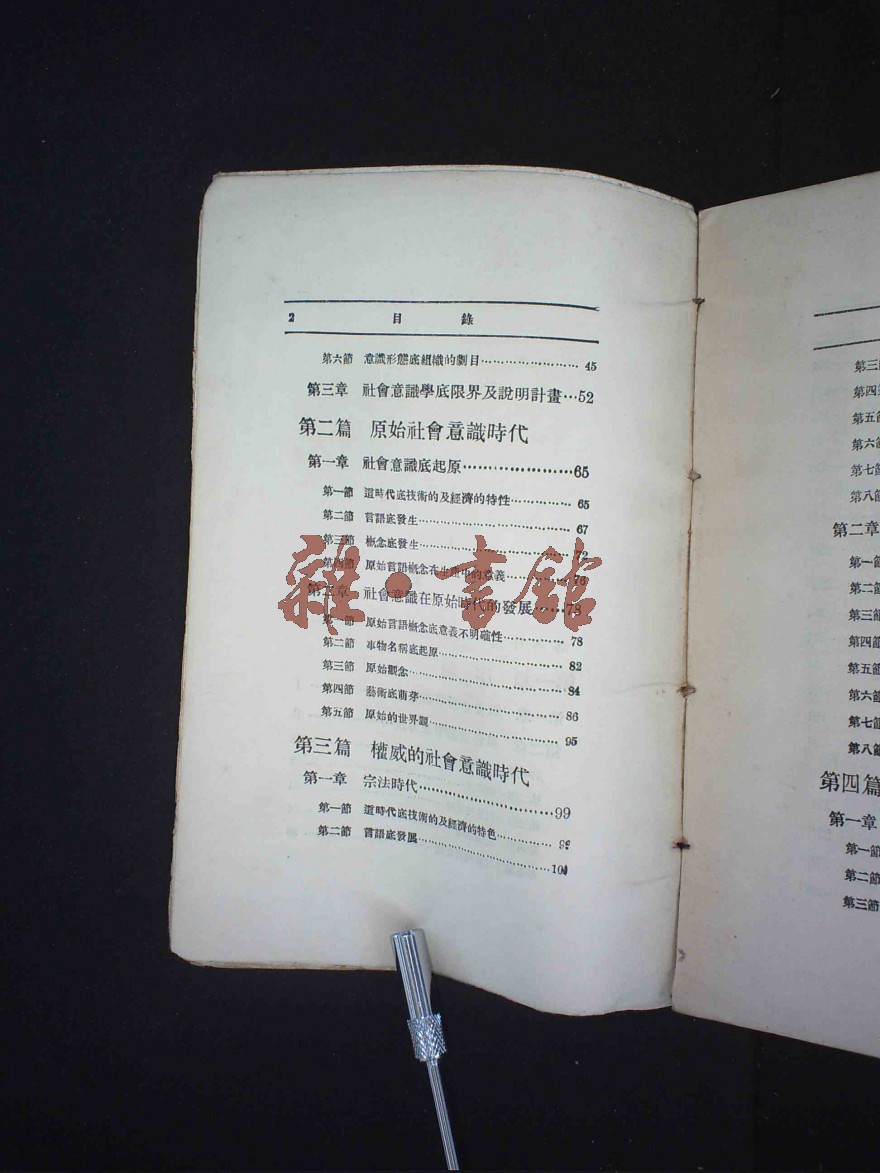 2 目 錄
第六節 意識形態底組織的劇目……………………45
第三章 社會意識學底限界及說明計畫…52
第二篇 原始社會意識時代
第一章 社會意識底起原…………………65
第一節 這時代底技術的及經濟的特性……………65
第二節 言語底發生………………………………67
第三節 概念底發生………………………………72
第四節 原始言語概念在生產中的意義……………76
第二章 社會意識在原始時代的發展……78
第一節 原始言語概念底意義不明確性……………78
第二節 事物名稱底起原…………………………82
第三節 原始觀念…………………………………84
第四節 藝術底萌芽………………………………86
第五節 原始的世界觀……………………………95
第三篇 權威的社會意識時代
第一章 宗法時代…………………………99
第一節 這時代底技術的及經濟的特色……………99
第二節 言語底發展………………………………
雜·書館
第三
第四
第五節
第六節
第七節
第八節
第二章
第一節
第二節
第三節
第四節
第五節
第六節
第七節
第八節
第四篇
第一章
第一節
第二節
第三節